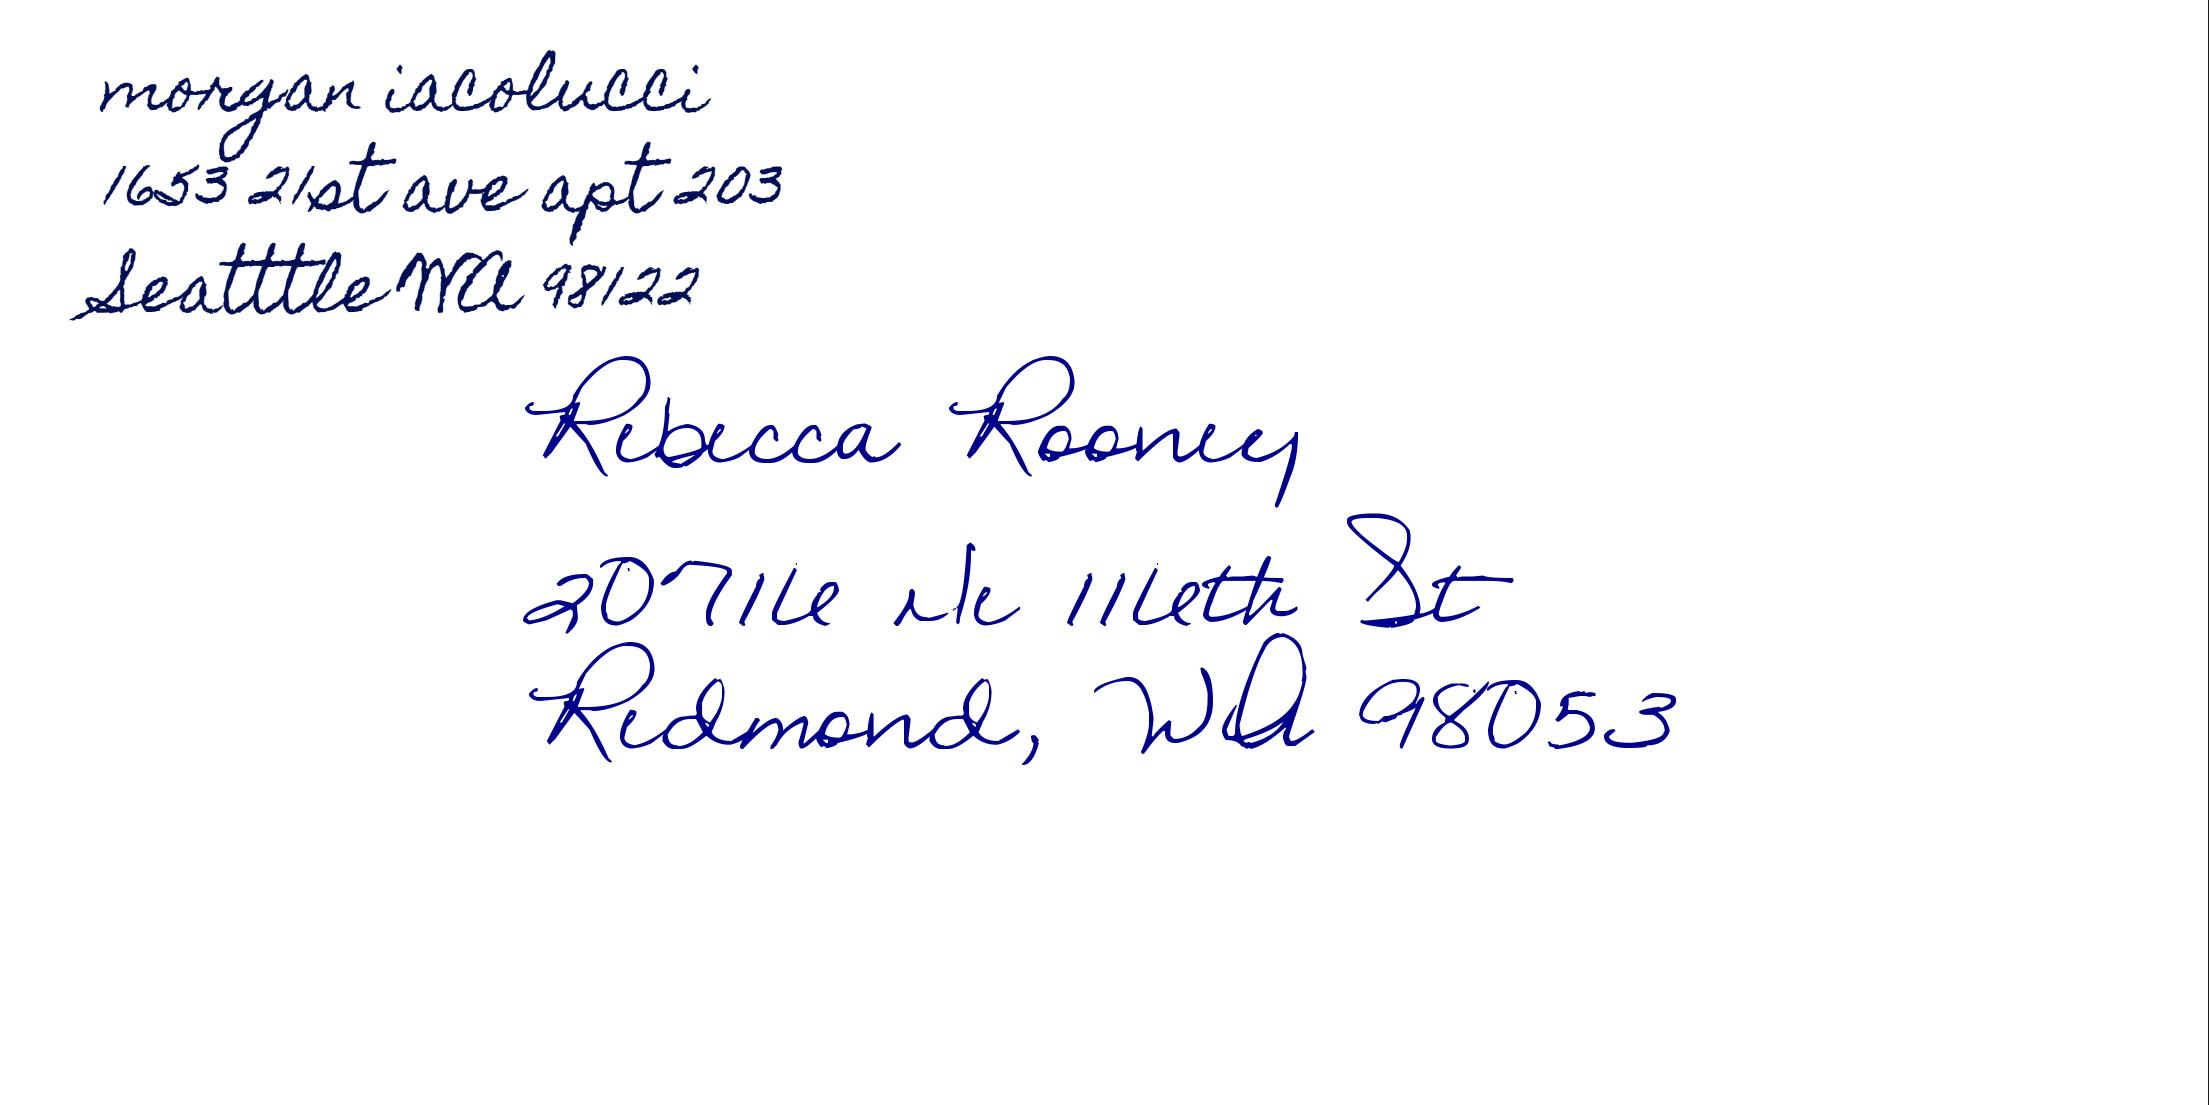 morgan iacolucci
1653 21st ave apt 203
Seatttle WA 98122
Rebecca Rooney
20716 Ne 116th St
Redmond, WA 98053